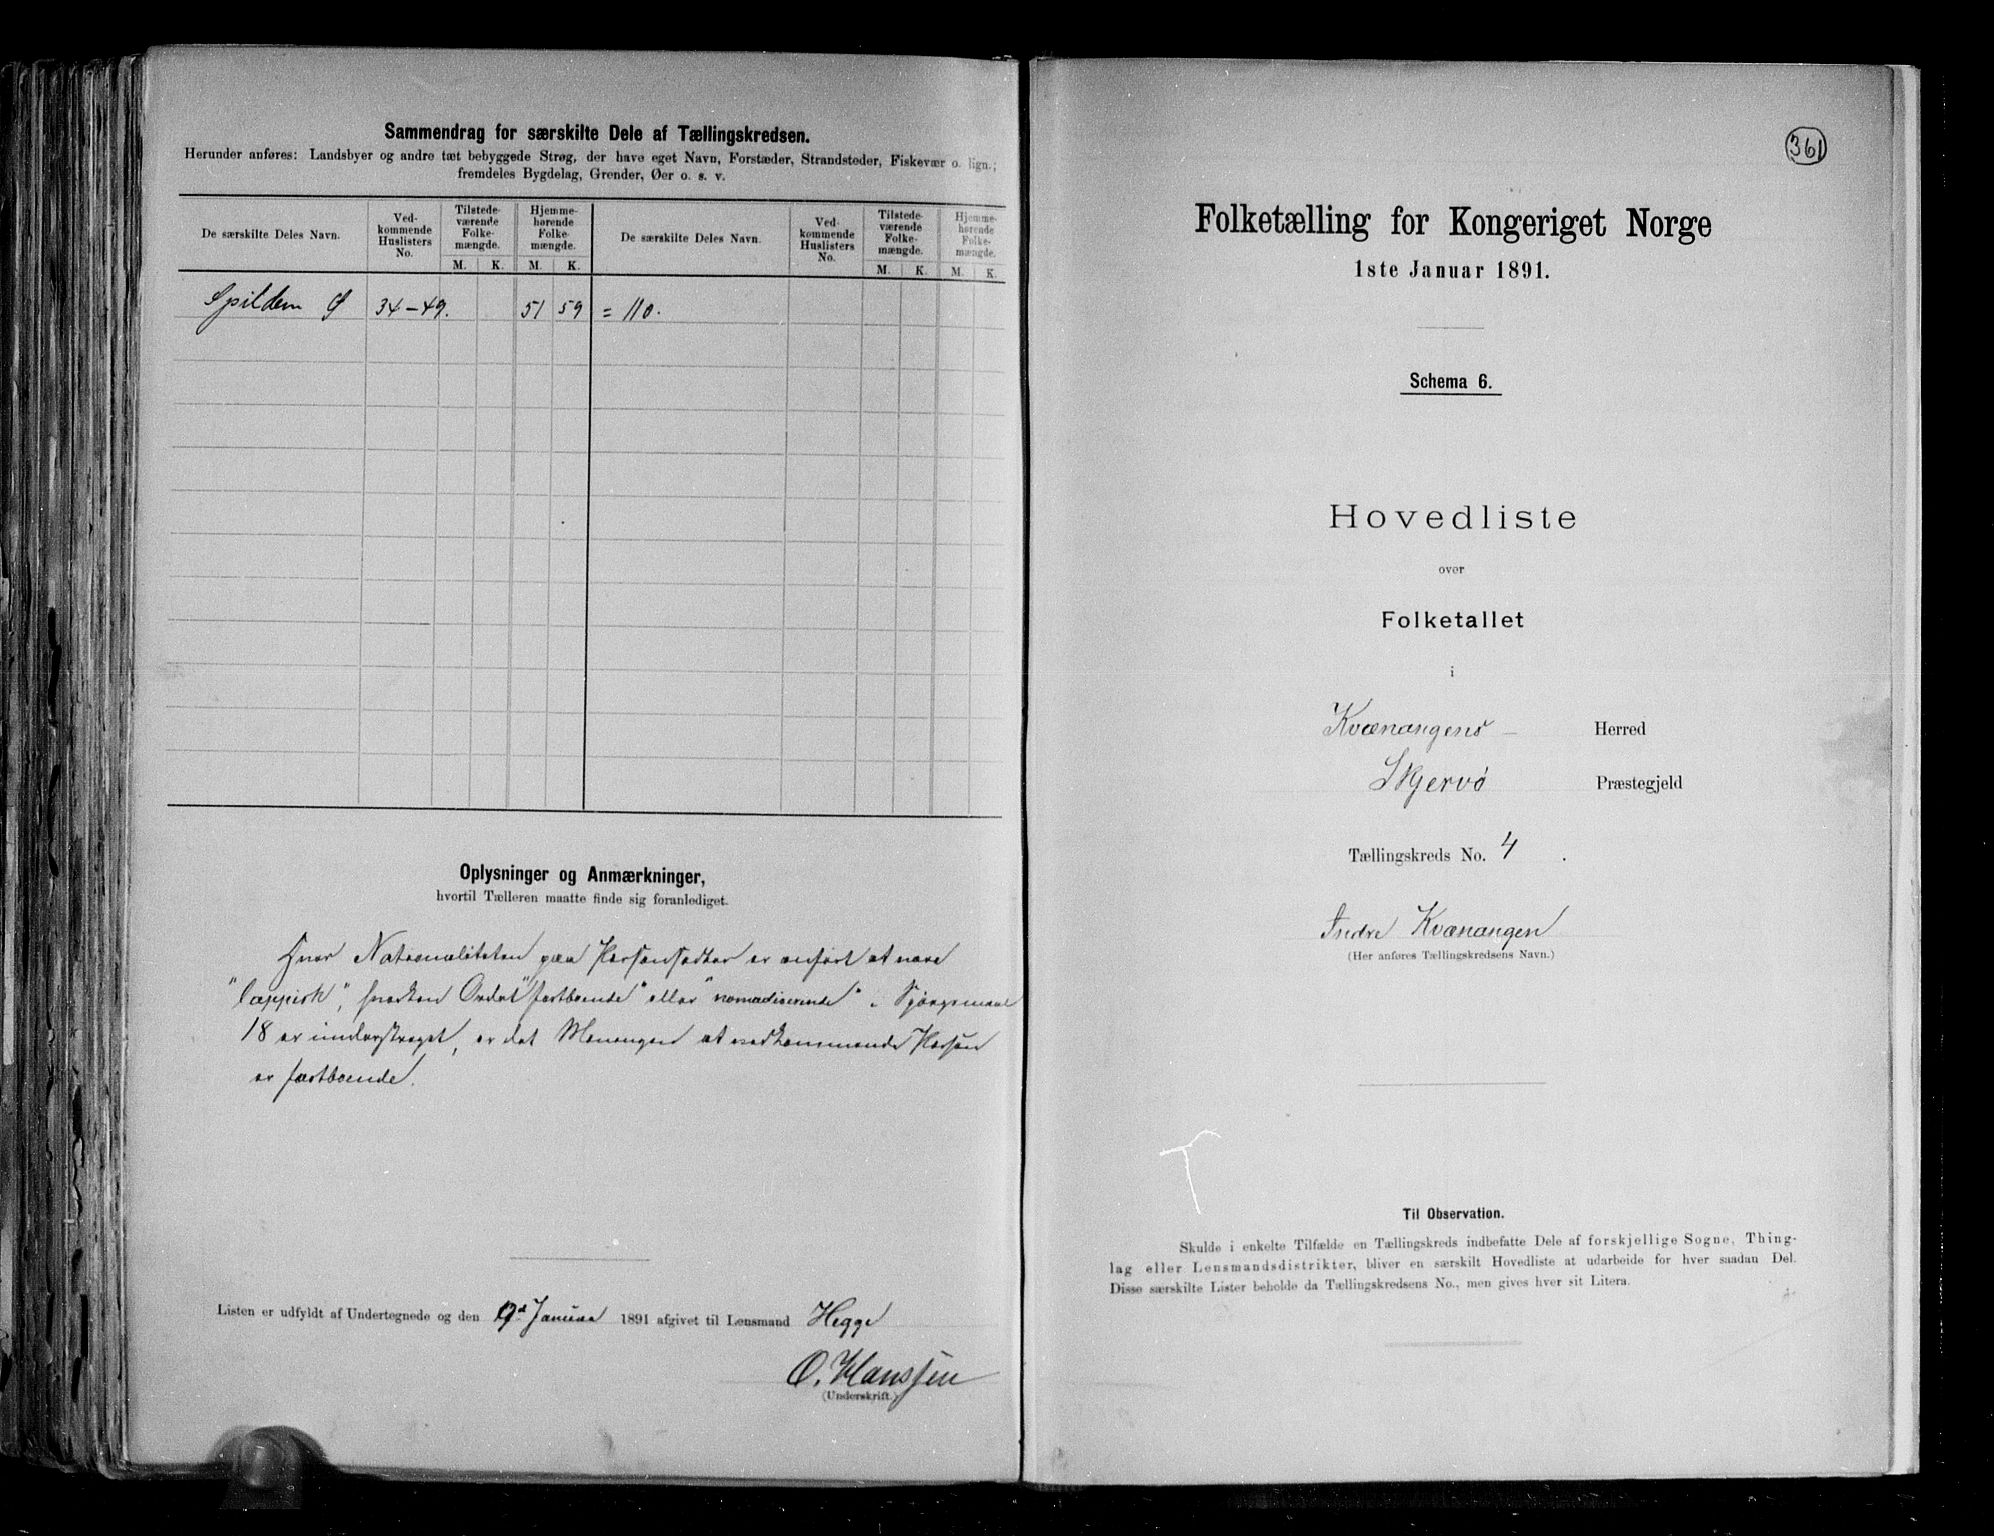 Sammendrag for særskilte Dele af Tællingskredsen.
Herunder anføres: Landsbyer og andre tæt bebyggede Strøg, der have eget Navn, Forstæder, Strandsteder, Fiskevær o. lign.;
fremdeles Bygdelag, Grender, Øer o. s. v.
De særskilte Deles Navn.
Ved-
kommende
Huslisters
No.
Tilstede-
værende
Folke-
mængde.
M. K.
Hjemme-
hørende
Folke-
mængde.
M. K.
De særskilte Deles Navn.
Ved-
kommende
Huslisters
No.
Tilstede-
værende
Folke-
mængde.
M. K.
Hjemme-
hørende
Folke-
mængde.
M. K.
Spildern Ø 34-49. 51 59 = 110.
Oplysninger og Anmærkninger,
hvortil Tælleren maatte finde sig foranlediget.
Hvor Nationaliteten paa Personsedler er anført at være
"lappisk", hverken Ordet "fastboende" eller "nomadiserende" i Spørgsmaal
18 er understreget, er det Meningen at vedkommende Person
er fastboende.
Listen er udfyldt af Undertegnede og den Januar 1891 afgivet til Lensmand Hegge
O. Hanssen
(Underskrift.)
361
Folketælling for Kongeriget Norge
1ste Januar 1891.
Schema 6.
Hovedliste
over
Folketallet
i
Kvænangens Herred
Skjervø Præstegjeld
Tællingskreds No. 4.
Indre Kvænangen
(Her anføres Tællingskredsens Navn.)
Til Observation.
Skulde i enkelte Tilfælde en Tællingskreds indbefatte Dele af forskjellige Sogne, Thing-
lag eller Lensmandsdistrikter, bliver en særskilt Hovedliste at udarbeide for hver saadan Del.
Disse særskilte Lister beholde da Tællingskredsens No., men gives hver sit Litera.